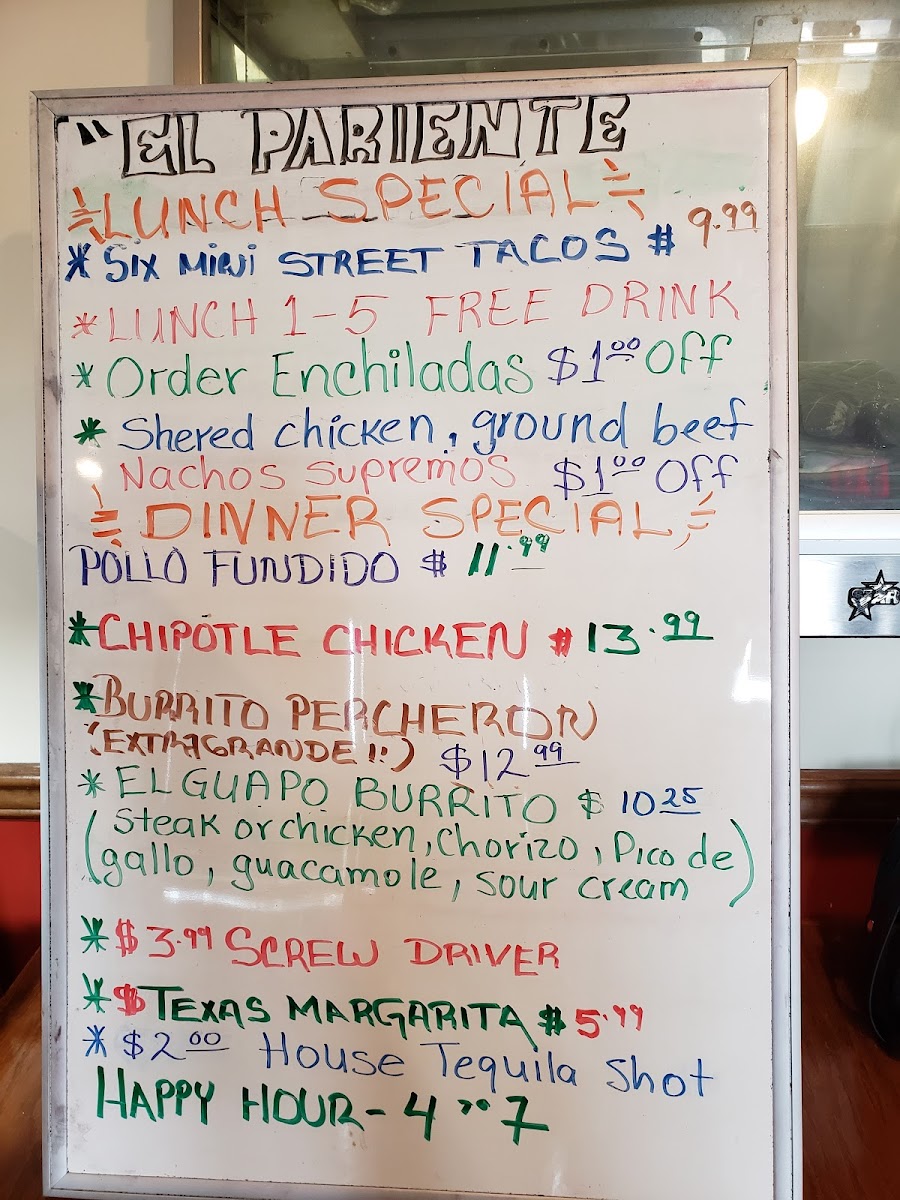 "EL PARIENTE
LUNCH SPECIAL
* SIX MINI STREET TACOS $ 9.99
* LUNCH 1-5 FREE DRINK
* Order Enchiladas $1.00 Off
* Shered chicken, ground beef
Nachos supremos $1.00 Off
DINNER SPECIAL
POLLO FUNDIDO $ 11.99
* CHIPOTLE CHICKEN $ 13.99
* BURRITO PERCHERON
(EXTRAGRANDE!!) $12 99
* EL GUAPO BURRITO $ 10 25
(Steak or chicken, Chorizo, Pico de
gallo, guacamole, sour cream)
* $3.99 SCREW DRIVER
* $TEXAS MARGARITA $ 5.99
* $2 00 House Tequila Shot
HAPPY HOUR - 4 ” 7
STAR